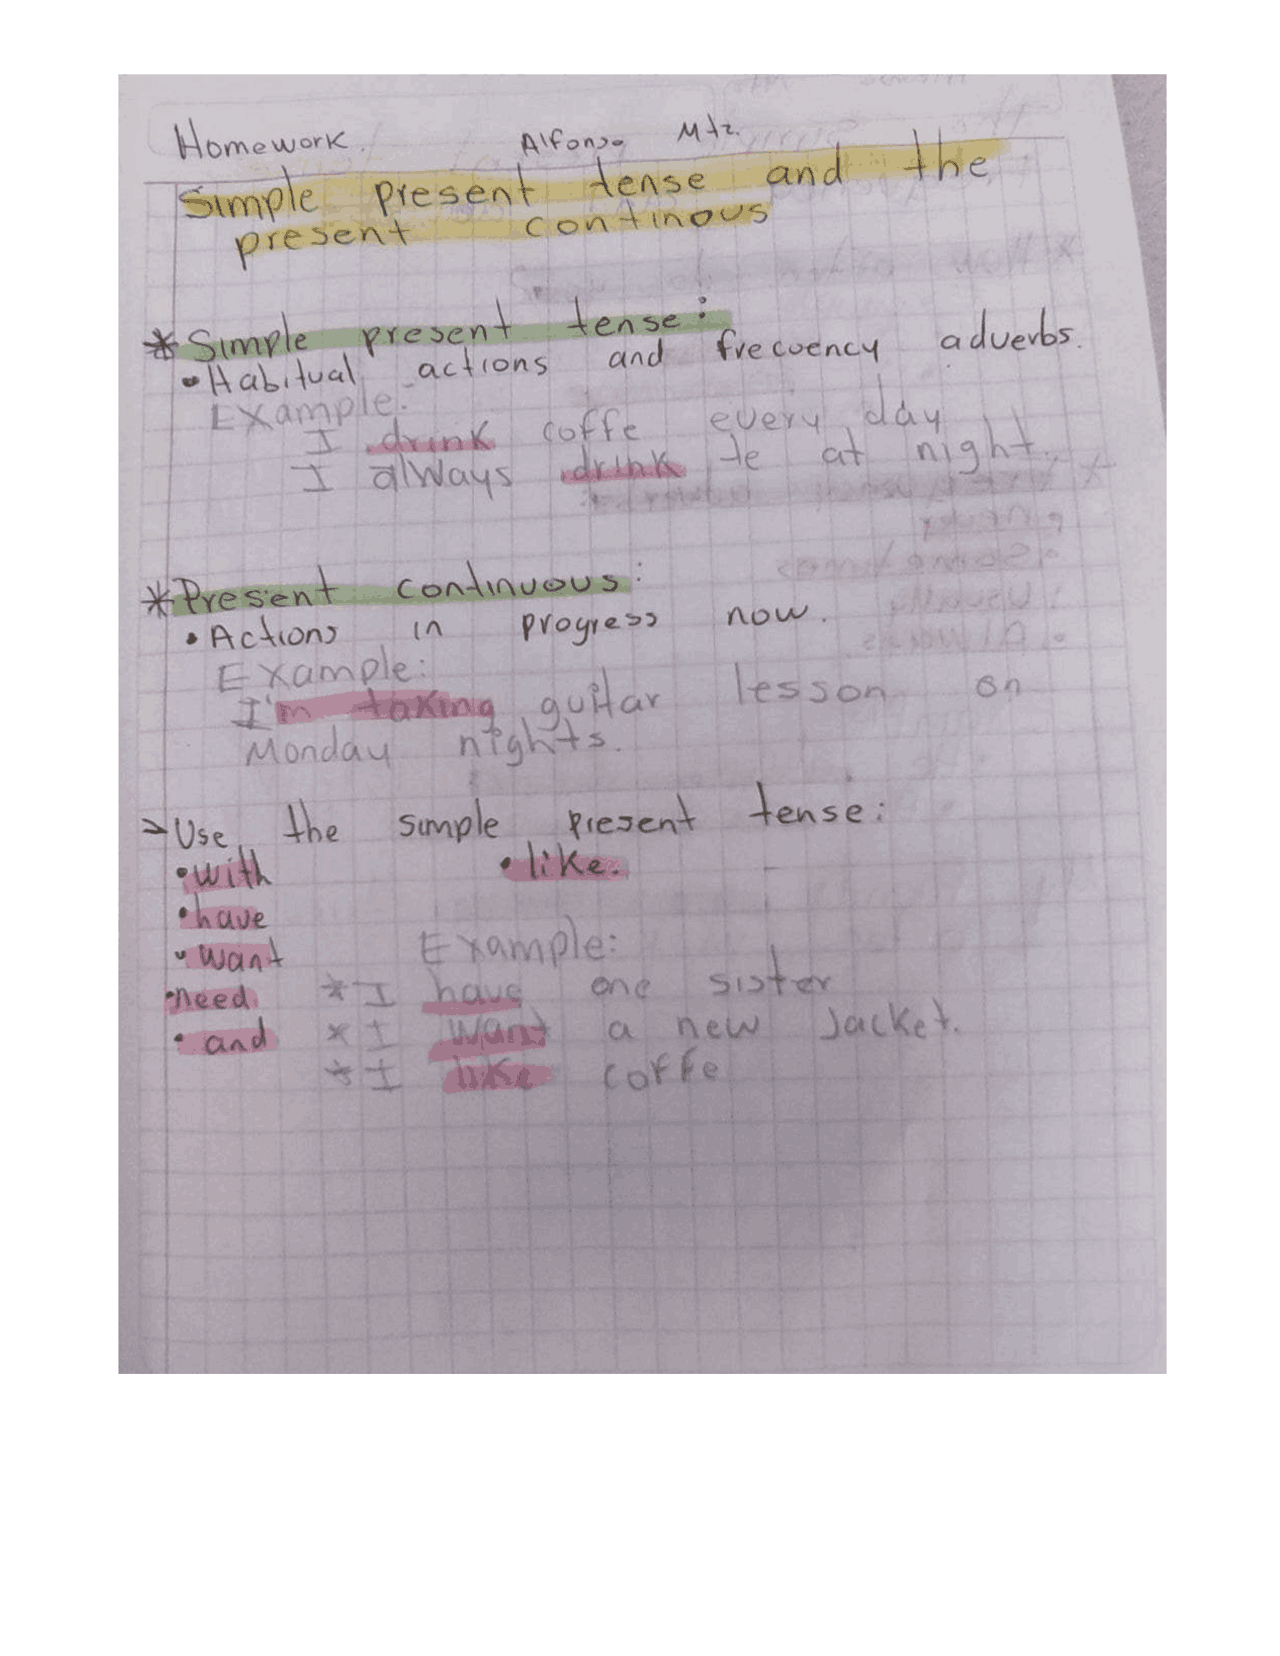 Homework Alfonso Mtz.
Simple present tense and the
present continous
* Simple present tense:
• Habitual actions and frecuency adverbs.
Example:
I drink coffe every day
I always drink te at night.
* Present continuous:
• Actions in progress now.
Example:
I'm taking guitar lesson on
Monday nights.
> Use the simple present tense:
• with • like.
• have
• want Example:
• need * I have one sister
• and * I want a new Jacket.
* I like coffe